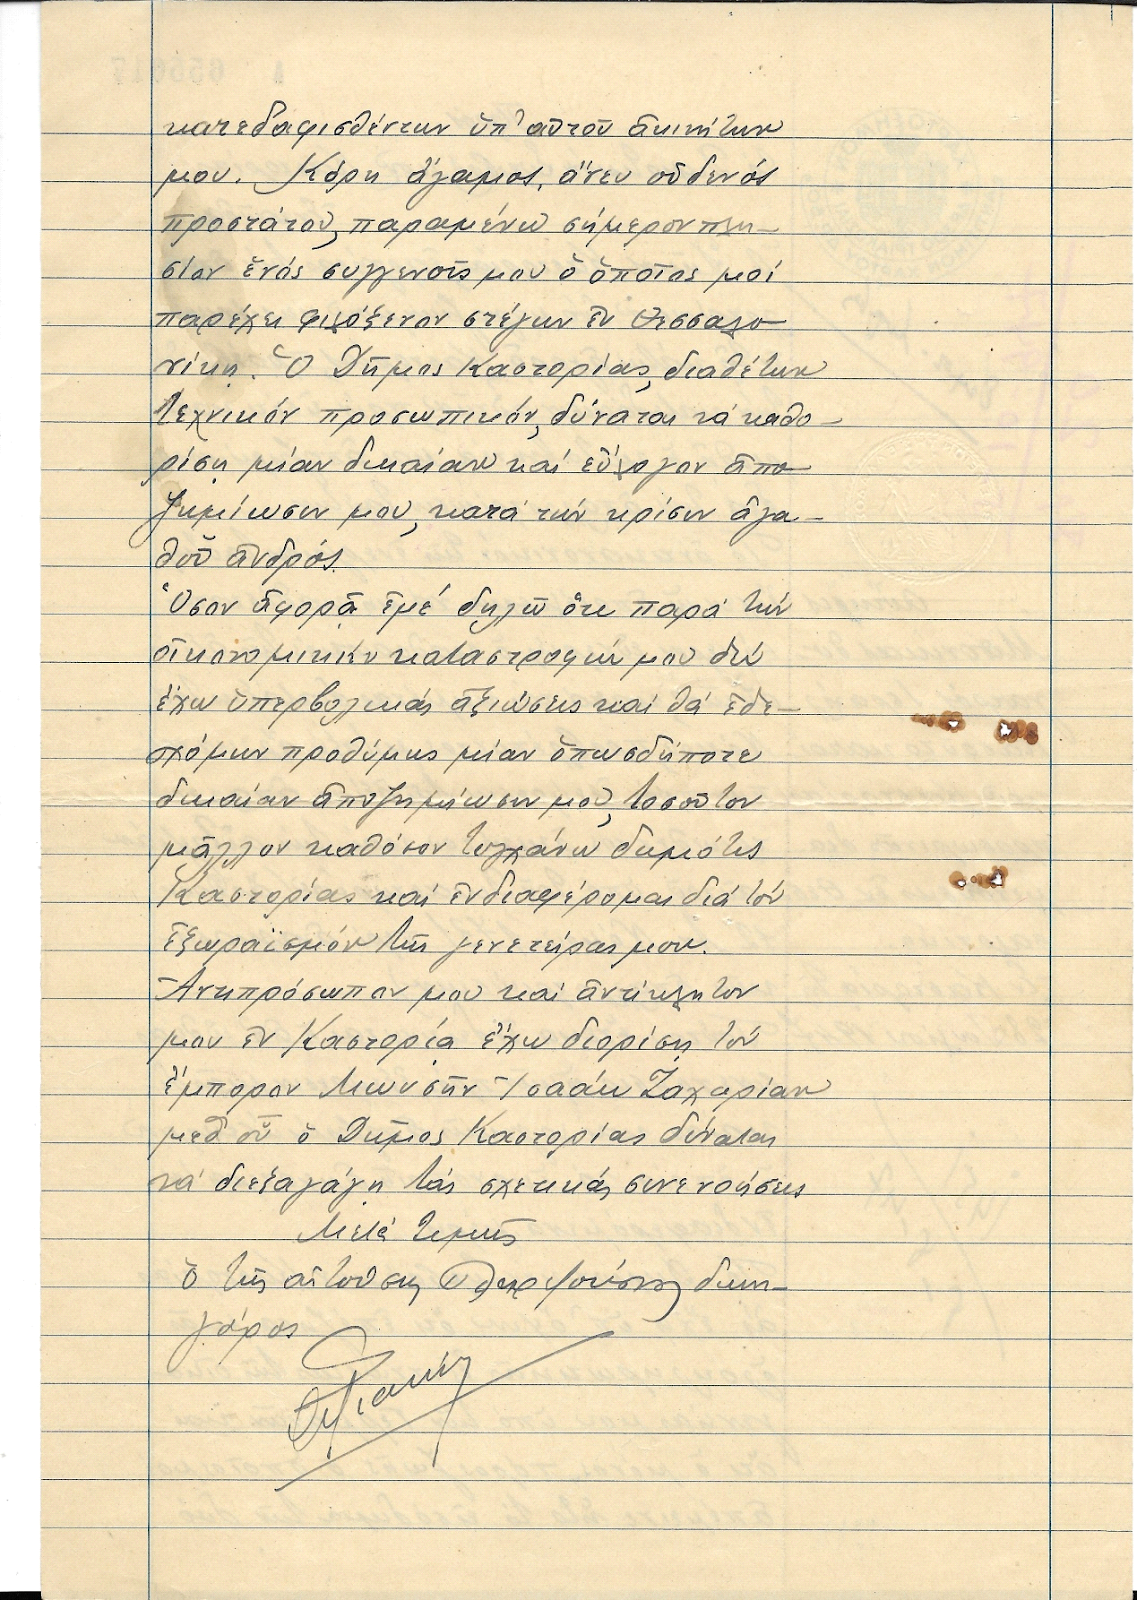 κατεδαφισθέντων ὑπ' αὐτοῦ ἀκινήτων
μου. Κόρη ἄγαμος, ἄνευ οὐδενός
προστάτου, παραμένω σήμερον πλη-
σίον ἑνός συγγενοῦς μου ὁ ὁποῖος μοί
παρέχει φιλόξενον στέγην ἐν Θεσσαλο-
νίκῃ. Ὁ Δῆμος Καστορίας, διαθέτων
τεχνικόν προσωπικόν, δύναται νά καθο-
ρίσῃ μίαν δικαίαν καί εὔλογον ἀπο-
ζημίωσιν μου, κατά τήν κρίσιν ἀγα-
θοῦ ἀνδρός.
Ὅσον ἀφορᾷ ἐμέ δηλῶ ὅτι παρά τήν
οἰκονομικήν καταστροφήν μου δέν
ἔχω ὑπερβολικάς ἀξιώσεις καί θά ἐδε-
χόμην προθύμως μίαν ὁπωσδήποτε
δικαίαν ἀποζημίωσιν μου, τοσοῦτον
μᾶλλον καθόσον τυγχάνω δημότις
Καστορίας καί ἐνδιαφέρομαι διά τόν
ἐξωραϊσμόν τῆς γενετείρας μου.
Ἀντιπρόσωπον μου καί ἀντίκλητον
μου ἐν Καστορίᾳ ἔχω διορίσῃ τόν
ἔμπορον Μωυσῆν Ἰσαάκ Ζαχαρίαν
μεθ' οὗ ὁ Δῆμος Καστορίας δύναται
νά διεξαγάγῃ τάς σχετικάς συνενοήσεις
Μετά τιμῆς
ὁ τῆς αἰτούσης πληρεξούσιος δικη-
γόρος